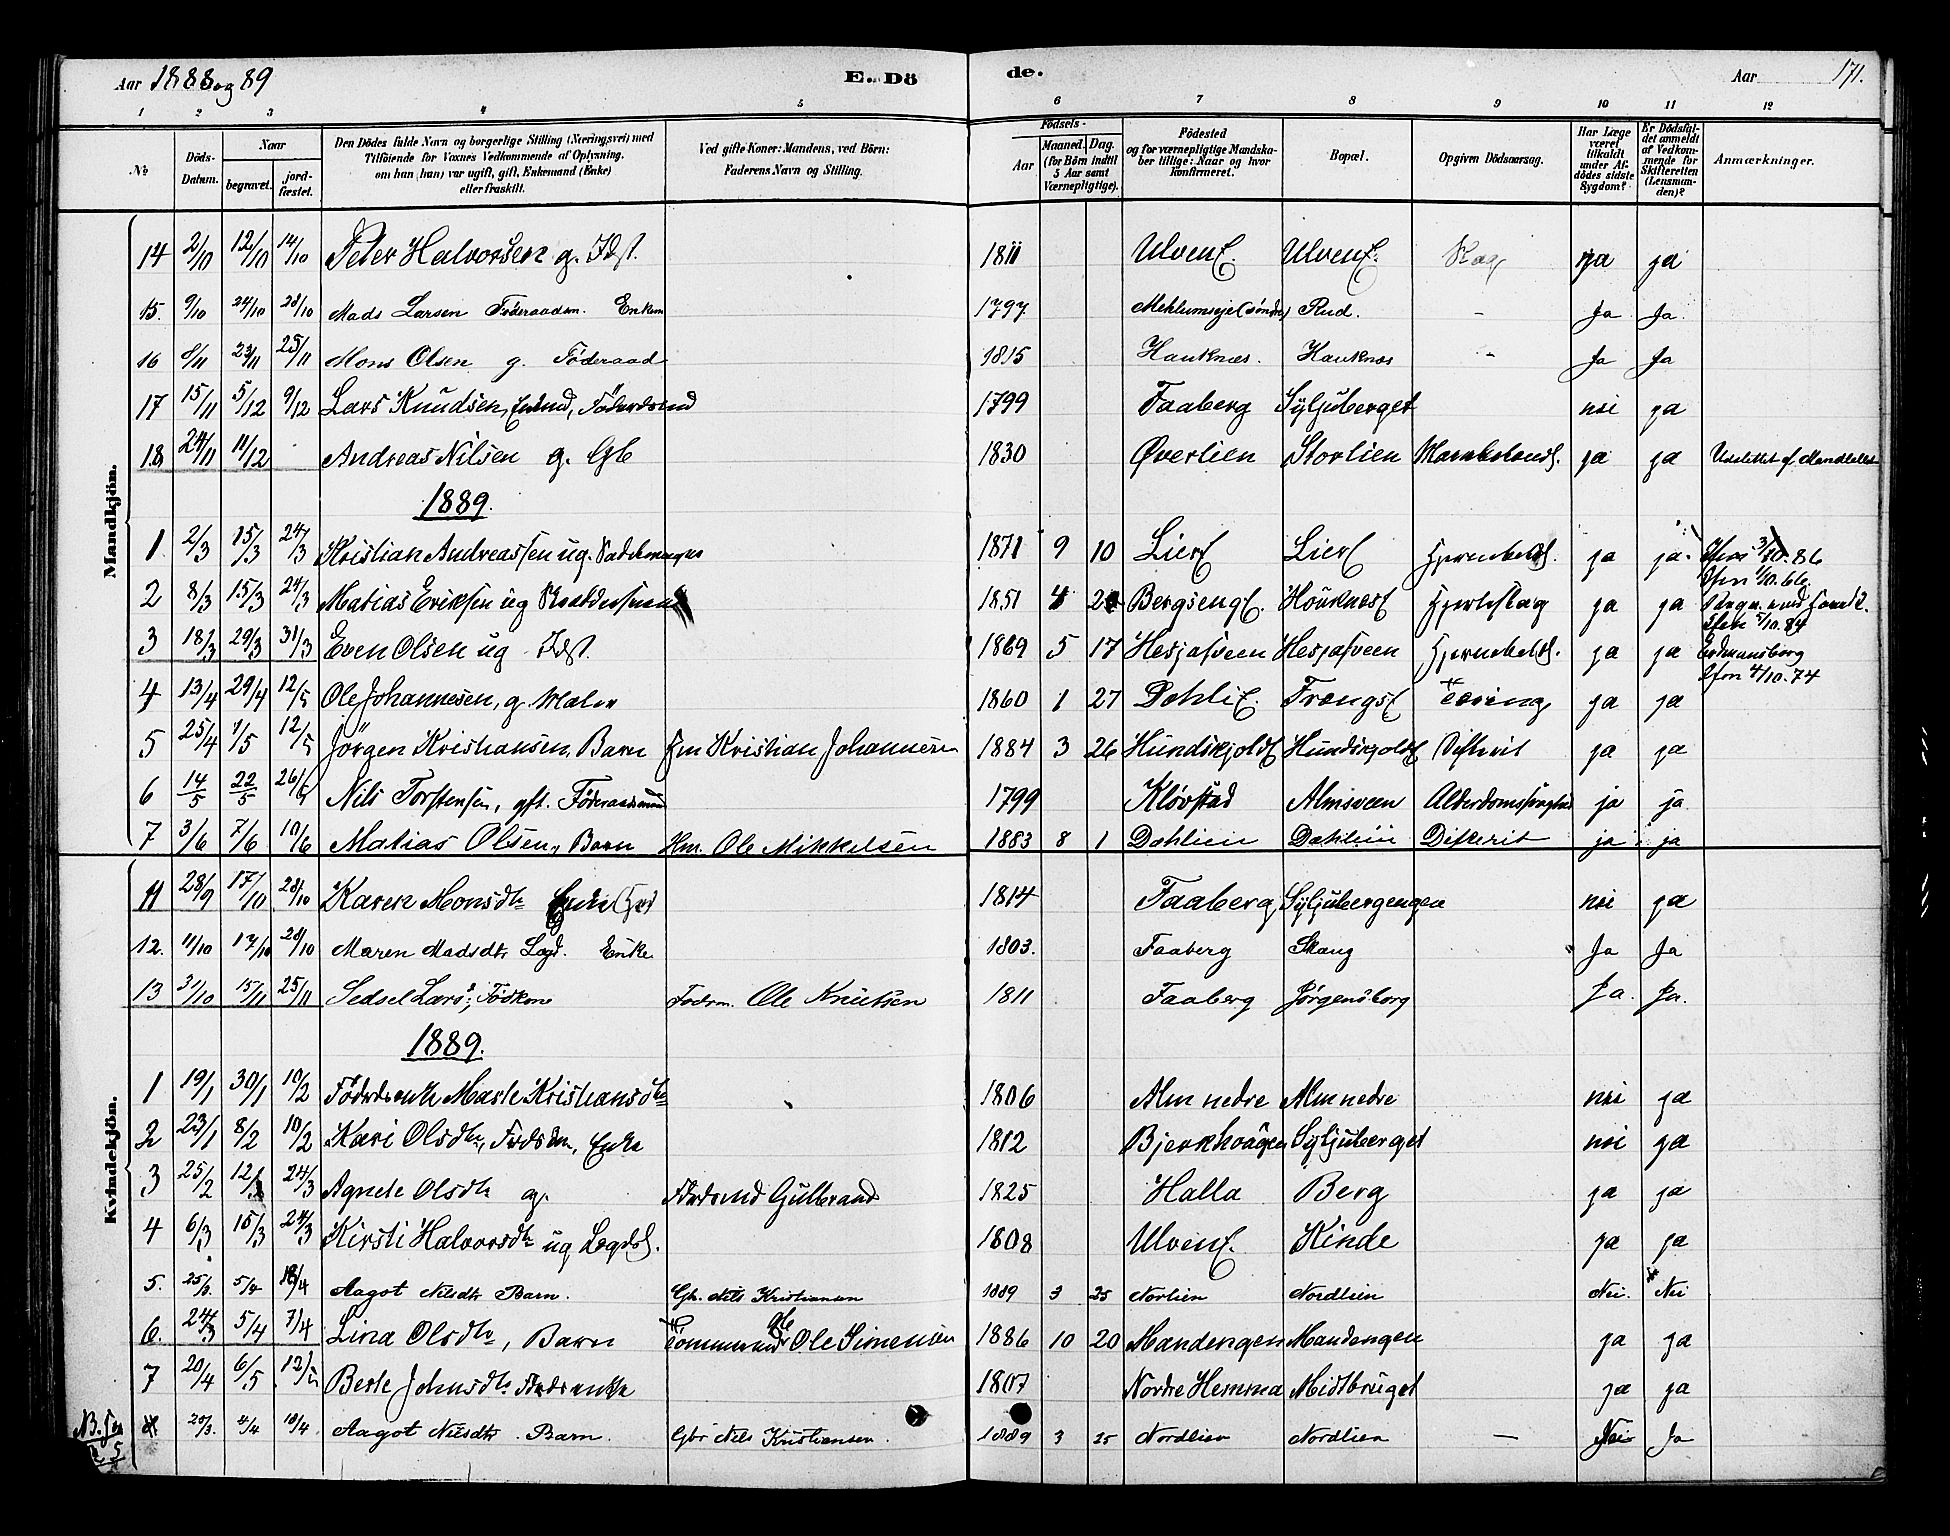 Aar 1888 og 89 E. Dö de. Aar 171.
1 2 3 4 5 6 7 8 9 10 11 12
No Döds-Datum. Naar begravet. jord-fæstet. Den Dödes fulde Navn og borgerlige Stilling (Næringsvei) med Tilföiende for Voxnes Vedkommende af Oplysning, om han (hun) var ugift, gift, Enkemand (Enke) eller fraskilt. Ved gifte Koner: Mandens, ved Börn: Faderens Navn og Stilling. Födsels- Aar Maaned. Dag. (for Börn indtil 5 Aar samt Værnepligtige). Födested og for værnepligtige Mandskaber tillige: Naar og hvor konfirmeret. Bopæl. Opgiven Dödsaarsag. Har Læge været tilkaldt under Afdödes sidste Sygdom? Er Dödsfaldet anmeldt af Vedkommende for Skifteretten (Lensmanden)? Anmærkninger.
Mandkjön.
14 2/10 12/10 14/10 Peter Halvorsen g. Idst. 1811 Ulven E. Ulven E. ja ja
15. 9/10 24/10 28/10 Mads Larsen Föderaadsm. Enkem 1797 Mehlumseje (søndre) Rud. - Ja Ja.
16 8/11 23/11 25/11 Mons Olsen g. Föderaad 1815 Hauknæs. Hauknæs - Ja Ja
17 15/11 5/12 9/12 Lars Knudsen, Enkmd, Föderdsmd 1799 Faaberg Syljuberget nei ja
18 24/11 11/12 Andreas Nilsen g. Gb 1830 Øverlien Storlien ja ja
1889.
1. 2/3 15/3 24/3 Kristian Andreassen ug. 1871 9 10 Lier E Lier E ja ja.
2 8/3 15/3 24/3 Matias Eriksen ug 1851 4 Bergseng E. Houknes E Hjerteslag ja ja
3 18/3 29/3 31/3 Even Olsen ug Idst. 1869 5 17 Hesjasveen Hesjasveen ja ja
4 13/4 29/4 12/5 Ole Johannesen, g. Maler 1860 1 27 Dæhli E. Frængs E Tæring ja ja
5 25/4 1/5 12/5 Jörgen Kristiansen, Barn Hm Kristian Johannesen 1884 3 26 Hundskjold E Hundskjold E Difterit ja ja
6 14/5 22/5 26/5 Nils Torstensen, gft. Föderaadsmand 1799 Kløvstad Almsveen ja ja
7 3/6 7/6 10/6 Matias Olsen, Barn Hm. Ole Mikkelsen 1883 8 1 Dæhlien Dæhlien Difterit ja ja
Kvindekjön.
11 28/9 17/10 28/10 Karen Monsdtr Enke 1814 Faaberg Syljubergengen nei ja
12. 11/10 17/10 28/10 Maren Madsdtr Lægd. Enke 1803. Faaberg Skaug Ja Ja
13 31/10 15/11 25/11 Sedsel Larsd; Födkone Födrm. Ole Knutsen 1811 Faaberg Jörgensborg Ja. Ja.
1889.
1 19/1 30/1 10/2 Föderdsenke Marte Kristiansdtr 1806 Alm nedre Alm nedre nei ja
2 23/1 8/2 10/2 Kari Olsdtr, Enke 1812 Bjerkhaugen Syljuberget nei ja
3 25/2 12/3 24/3 Agnete Olsdtr g. Föderdsmd Gulbrand 1825 Halla Berg ja ja
4 6/3 15/3 24/3 Kirsti Halvorsdtr ug Lægdsl. 1808 Ulven E. Kinde ja ja
5. 25/3. 5/4 Aagot Nilsdtr Barn. Gb. Nils Kristiansen 1889 3 25 Norlien Nordlien Nei. Nei
6. 24/3 5/4 7/4 Lina Olsdtr, Barn Tömmermd Ole Simensen 1886 10 20 Mandengen Mandengen ja ja
7 20/4 6/5 12/5 Berte Johnsdtr Födrdsenke 1807 Nordre Hemma Midtbruget ja ja
20/3. 4/4 10/4 Aagot Nilsdtr. Barn. Gbr Nils Kristiansen. 1889 3 25 Nordlien Nordlien - Nei Ja